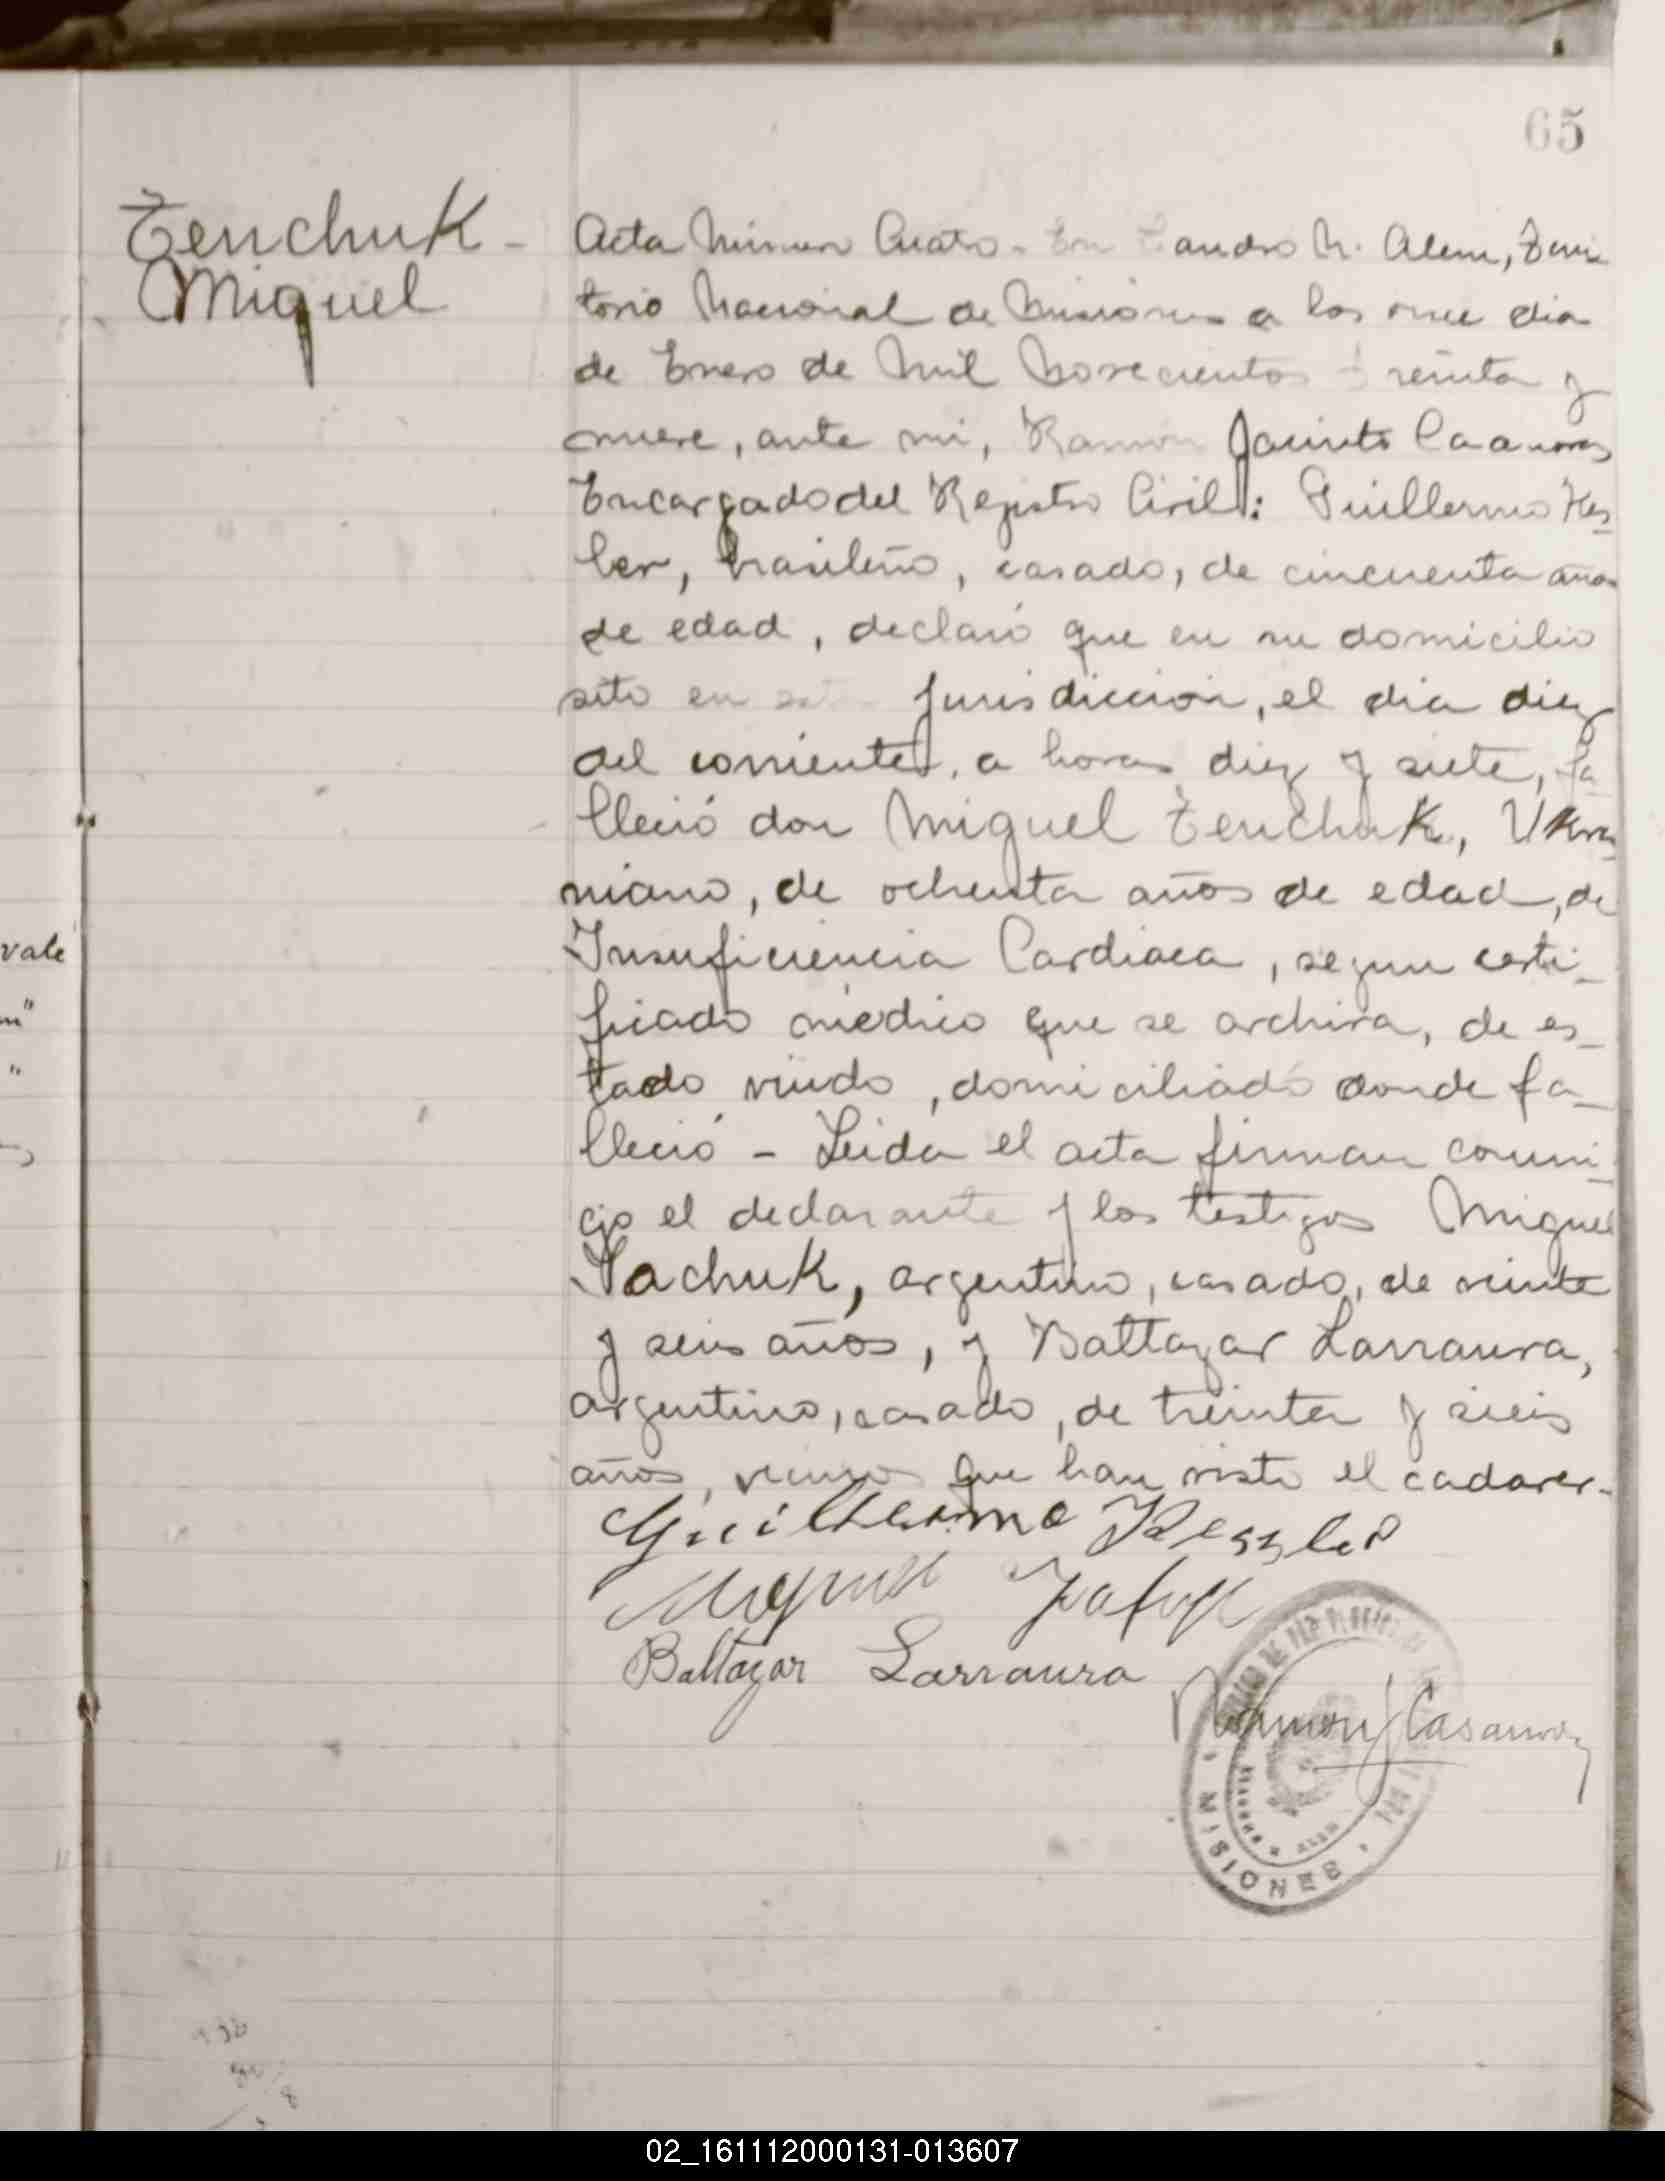 65
Tenchuk -
Miguel
Acta Número Cuatro - En Leandro N. Alem, Terri
torio Nacional de Misiones a los once dia
de Enero de Mil Novecientos treinta y
nueve, ante mi, Ramón Jacinto Casanova
Encargado del Registro Civil: Guillermo Kes_
ler, brasileño, casado, de cincuenta años
de edad, declaró que en su domicilio
sito en esta Jurisdicción, el dia diez
del corriente, a horas diez y siete, fa_
lleció don Miguel Tenchuk, Ukra_
niano, de ochenta años de edad, de
Insuficiencia Cardiaca, segun certi_
ficado médico que se archiva, de es_
tado viudo, domiciliado donde fa_
lleció - Leida el acta firman conmi_
go el declarante y los testigos Miguel
achuk, argentino, casado, de veinte
y seis años, y Baltazar Larraura,
argentino, casado, de treinta y seis
años, vecinos que han visto el cadaver.-
Guilhermo Kessler
Miguel
Baltazar Larraura
Ramon J Casanova
MISIONES
vale
"
"
02_161112000131-013607